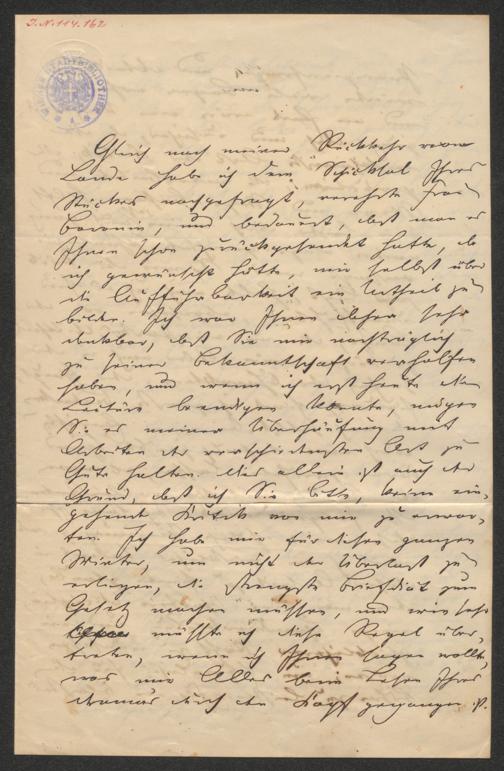 J.N. 114.162
WIENER STADTBIBLIOTHEK
Gleich nach meiner Rückkehr vom
Lande habe ich dem Schicksal Ihres
Stückes nachgefragt, verehrte Frau
Baronin, und bedauert, daß man es
Ihnen schon zurückgesendet hatte, da
ich gewünscht hätte, mir selbst über
die Aufführbarkeit ein Urtheil zu
bilden. Ich war Ihnen daher sehr
dankbar, daß Sie mir nachträglich
zu seiner Bekanntschaft verholfen
haben, und wenn ich erst heute die
Lectüre beendigen konnte, mögen
Sie es meiner Überhäufung mit
Arbeiten der verschiedensten Art zu
Gute halten. Dies allein ist auch der
Grund, daß ich Sie bitte, keine ein-
gehende Kritik von mir zu erwar-
ten. Ich habe mir für diesen ganzen
Winter, um nicht der Überlast zu
erliegen, die strengste Briefdiät zum
Gesetz machen müssen, und wie sehr
müßte ich diese Regel über-
treten, wenn ich Ihnen sagen wollte,
was mir Alles beim Lesen Ihres
Dramas durch den Kopf gegangen ist.